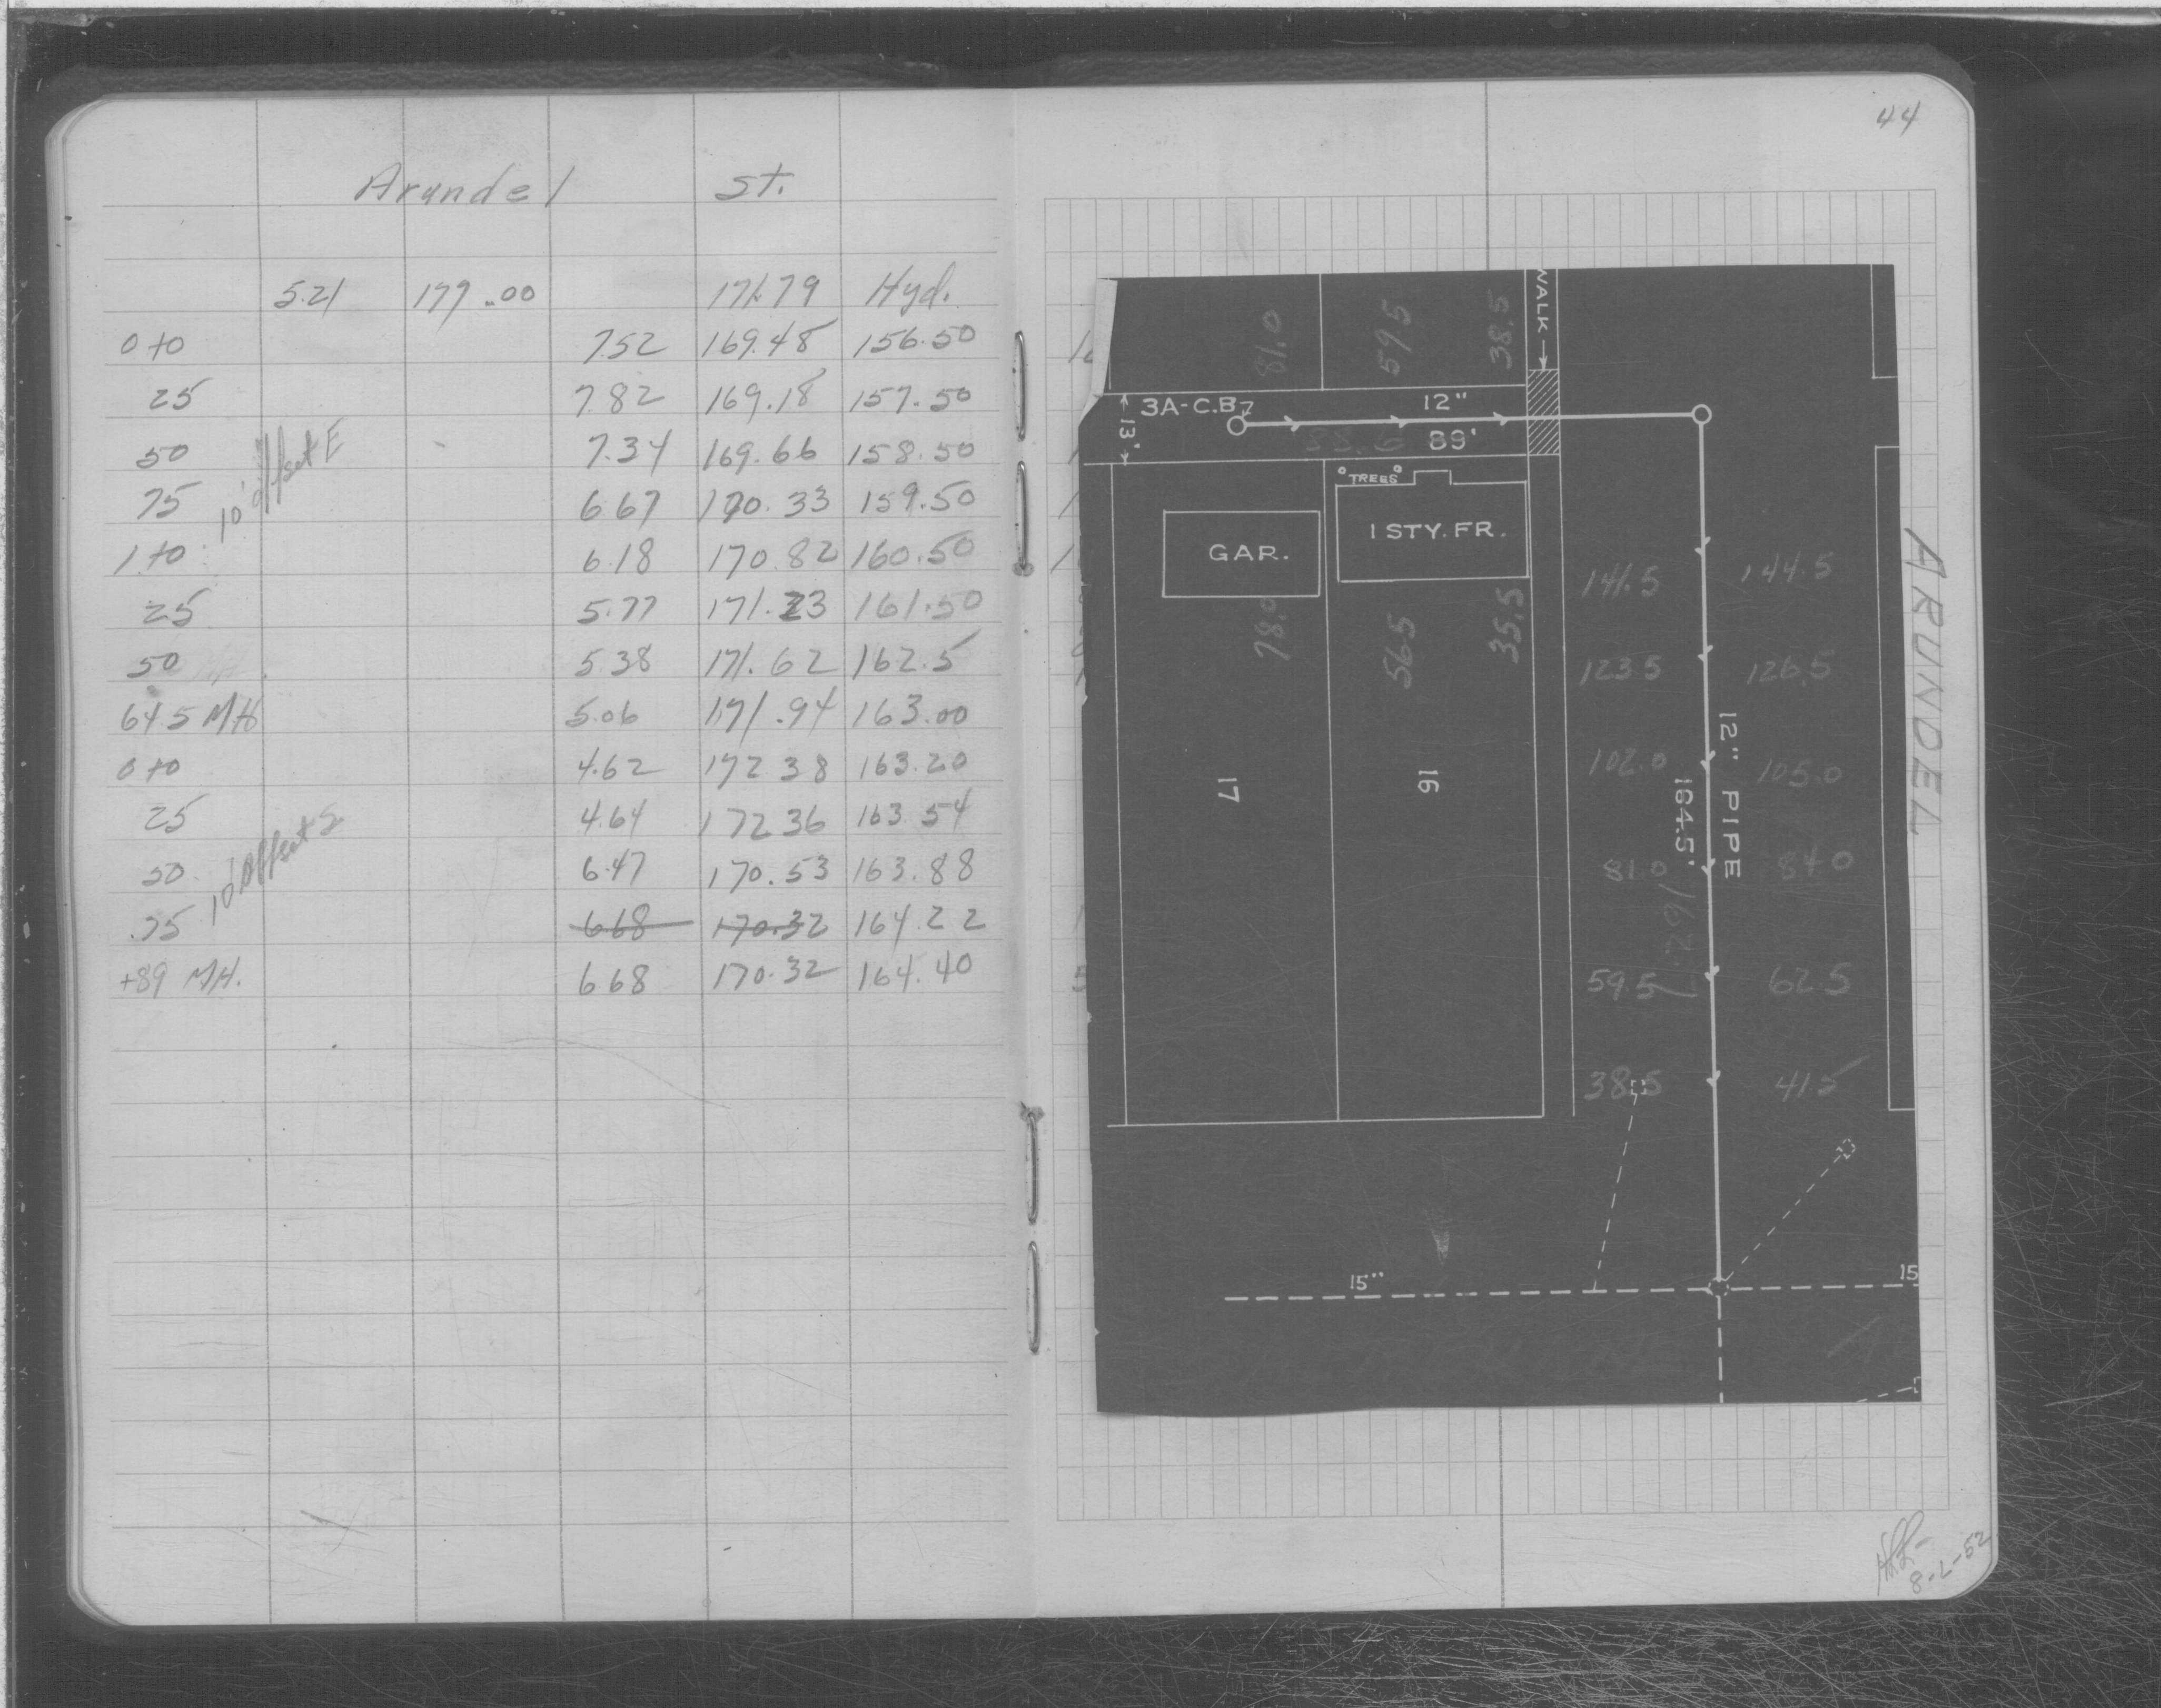 44
Arundel St.
5.21 177.00 171.79 Hyd.
0+0 7.52 169.48 156.50
25 7.82 169.18 157.50
50 7.34 169.66 158.50
75 6.67 170.33 159.50
1+0 6.18 170.82 160.50
25 5.77 171.23 161.50
50 5.38 171.62 162.5
64.5 MH 5.06 171.94 163.00
0+0 4.62 172.38 163.20
25 4.64 172.36 163.54
50 6.47 170.53 163.88
75 6.68 170.32 164.22
+89 MH. 6.68 170.32 164.40
10' offset E
10' offset S
WALK
81.0 59.5 38.5
3A-C.B. 12"
13' 89'
TREES
GAR. 1 STY. FR.
78.0 56.5 35.5
17 16
12" PIPE
184.5'
141.5 144.5
123.5 126.5
102.0 105.0
81.0 84.0
59.5 62.5
38.5 41.5
15" 15
ARUNDEL